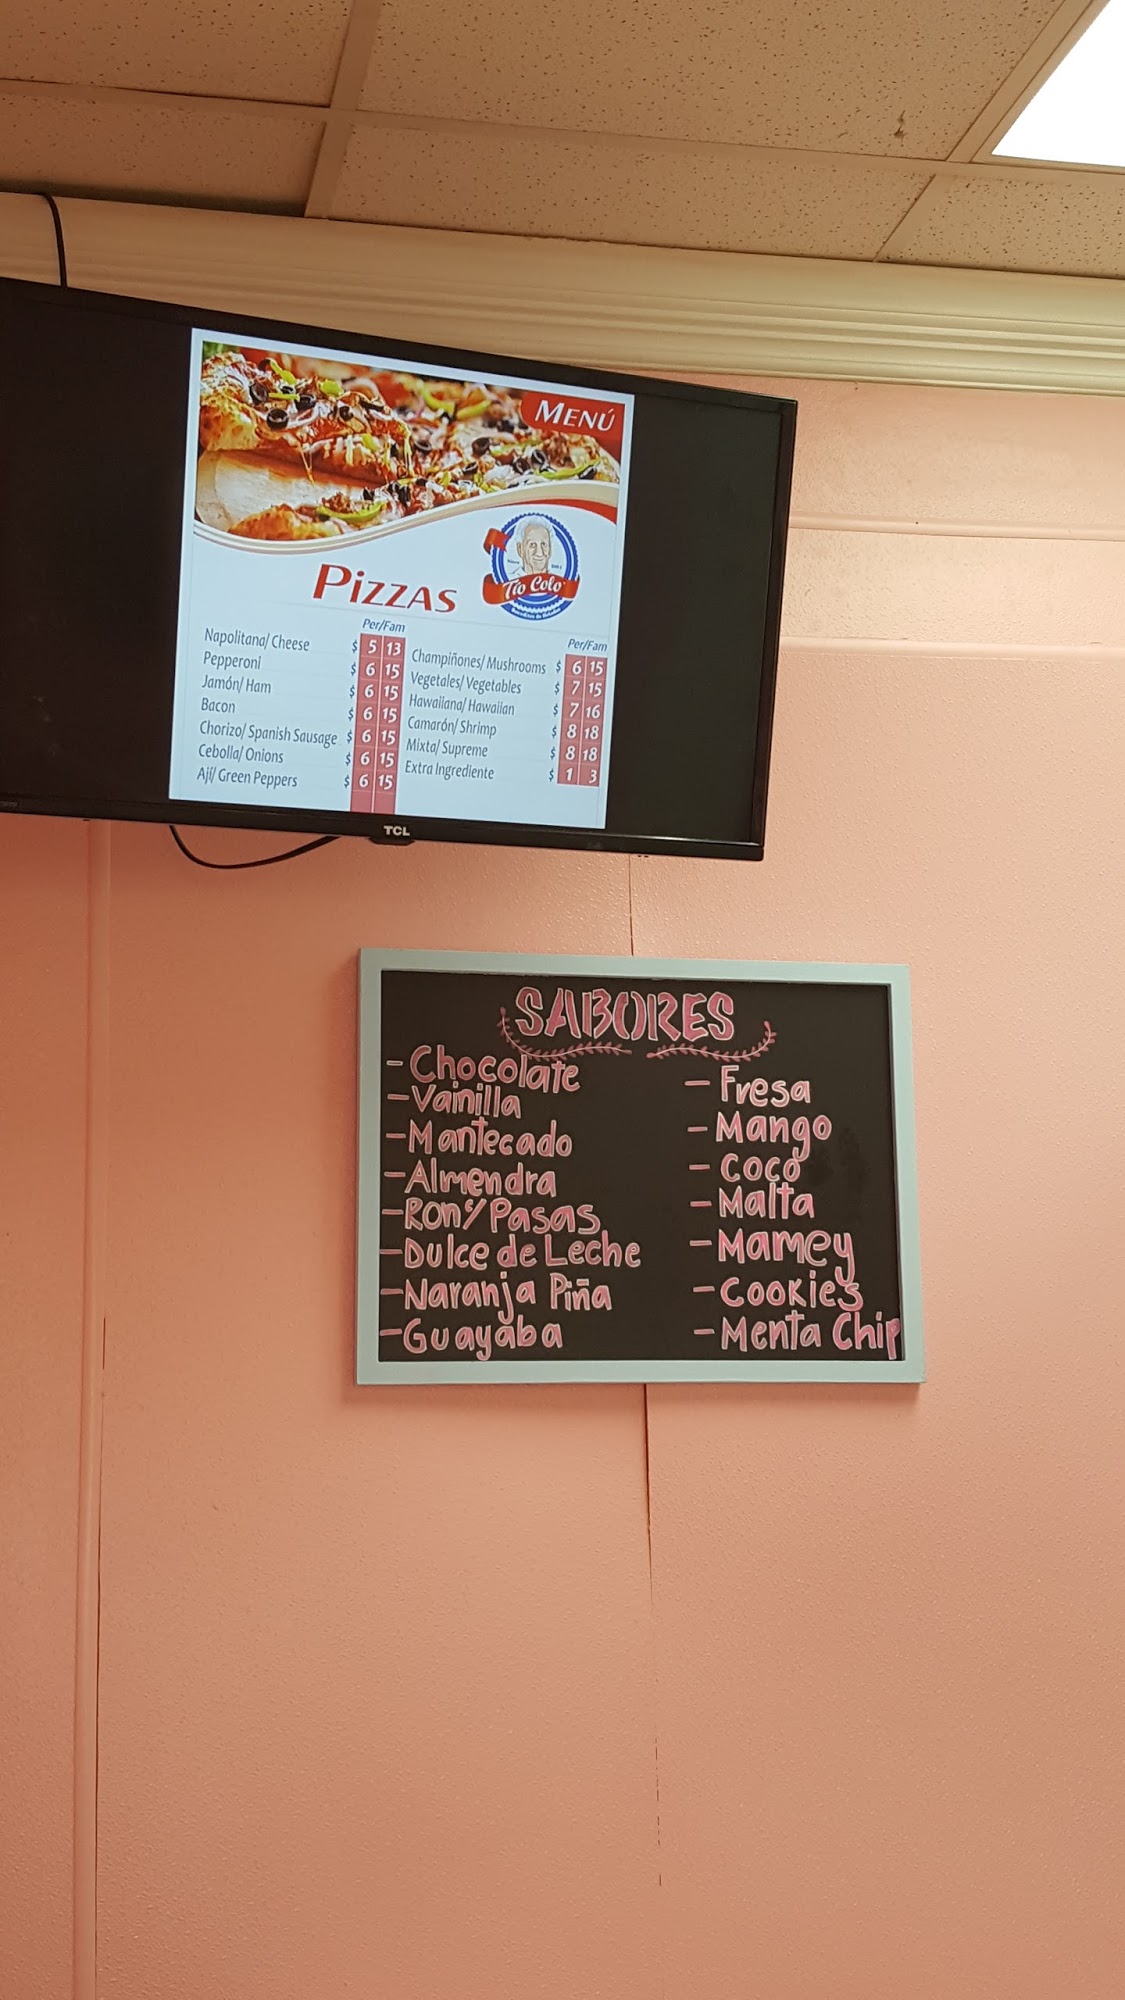 MENÚ
Tío Colo
PIZZAS
Per/Fam
Napolitana/ Cheese $ 5 13
Pepperoni $ 6 15
Jamón/ Ham $ 6 15
Bacon $ 6 15
Chorizo/ Spanish Sausage $ 6 15
Cebolla/ Onions $ 6 15
Ají/ Green Peppers $ 6 15
Per/Fam
Champiñones/ Mushrooms $ 6 15
Vegetales/ Vegetables $ 7 15
Hawaiiana/ Hawaiian $ 7 16
Camarón/ Shrimp $ 8 18
Mixta/ Supreme $ 8 18
Extra Ingrediente $ 1 3
TCL
SABORES
- Chocolate
- Vainilla
- Mantecado
- Almendra
- Ron y Pasas
- Dulce de Leche
- Naranja Piña
- Guayaba
- Fresa
- Mango
- Coco
- Malta
- Mamey
- Cookies
- Menta Chip